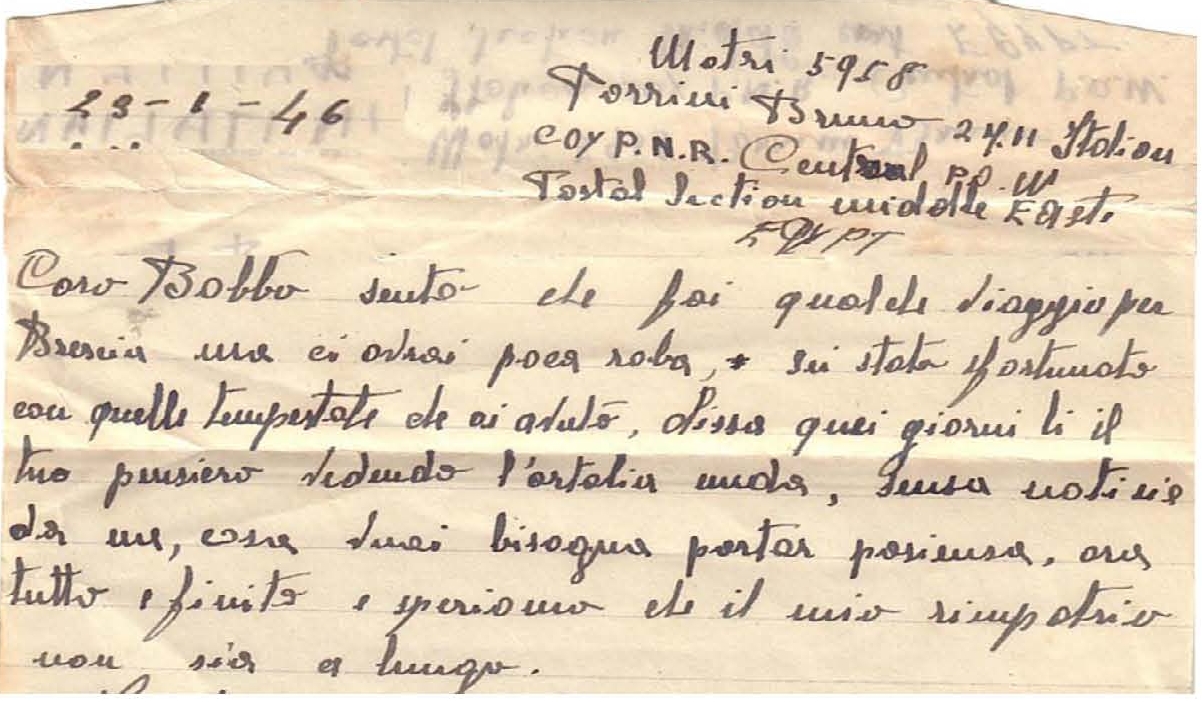 23-1-46
Matri 5958
Torrini Bruno 2711 Italian
COY P.N.R. Central P.O.W
Postal Section middle East
EGYPT
Caro Babbo sento che fai qualche viaggio per
Brescia ma ci avrai poca roba, sei stato sfortunato
con quelle tempestate che ai avuto, chissa quei giorni li il
tuo pensiero vedendo l'ortalia nuda, sensa notizie
da me, cosa vuoi bisogna portar pasiensa, ora
tutto e finito e speriamo che il mio rimpatrio
non sia a lungo.